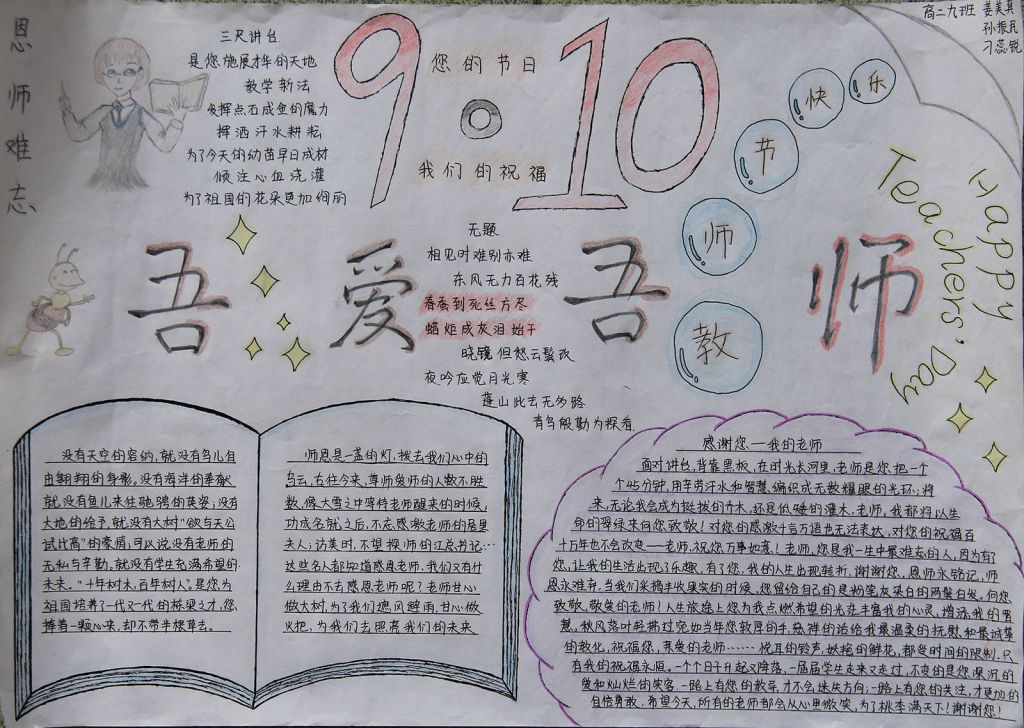 恩师难忘
三尺讲台
是您施展才华的天地
教学新法
发挥点石成金的魔力
挥洒汗水耕耘
为了今天的幼苗早日成材
倾注心血浇灌
为了祖国的花朵更加绚丽
9·10
您的节日
我们的祝福
高二九班 姜美真
孙振民
刁蕊锐
教师节快乐
Happy
Teachers' Day
吾爱吾师
无题
相见时难别亦难
东风无力百花残
春蚕到死丝方尽
蜡炬成灰泪始干
晓镜但愁云鬓改
夜吟应觉月光寒
蓬山此去无多路
青鸟殷勤为探看
没有天空的容纳,就没有鸟儿自
由翱翔的身影。没有海洋的奉献
就没有鱼儿来往驰骋的英姿;没有
大地的给予,就没有大树"欲与天公
试比高"的豪情;可以说没有老师的
无私与辛勤,就没有学生充满希望的
未来。"十年树木,百年树人"。是您为
祖国培养了一代又一代的桥梁之才,您
捧着一颗心来,却不带半根草去。
师恩是一盏的灯,拨去我们心中的
乌云,古往今来,尊师爱师的人数不胜
数,像大雪之中等待老师醒来的时候,
功成名就之后,不忘感激老师的居里
夫人;访美时,不望探师的江总书记…
这些名人都知道感恩老师,我们又有什
么理由不去感恩老师呢?老师甘心
做大树,为了我们遮风避雨,甘心做
火把,为我们去照亮我们的未来
感谢您——我的老师
面对讲台,背靠黑板,在时光长河里,老师是您把一个
个45分钟,用辛劳汗水和智慧,编织成无数耀眼的光环;将
来,无论我会成为挺拔的乔木,还是低矮的灌木,老师,我都将以生
命的翠绿来向您致敬!对您的感激千言万语也无法表达,对您的祝福百
十万年也不会改变——老师,祝您万事如意!老师,您是我一生中最难忘的人,因为有了
您,让我的生活出现了乐趣,有了您,我的人生出现转折,谢谢您,恩师永铭记,师
恩永难弃,当我们采摘丰收果实的时候,您留给自己的是粉笔灰染白的两鬓白发,向您
致敬,敬爱的老师!人生旅途上您为我点燃希望的光芒丰富我的心灵,增添我的智
慧,秋风落叶轻拂过宛如当年您敦厚的手,慈祥的话给我最温柔的抚慰和最诚挚
的教化,祝福您,亲爱的老师……悦耳的铃声,妖艳的鲜花,都受时间的限制,只
有我的祝福永恒,一个个日子升起又降落,一届届学生走来又走过,不变的是您深沉的
爱和灿烂的笑容,一路上有您的教导,才不会迷失方向;一路上有您的关注,才更加的
自信勇敢,希望今天,所有的老师都会从心里微笑,为了桃李满天下!谢谢您!